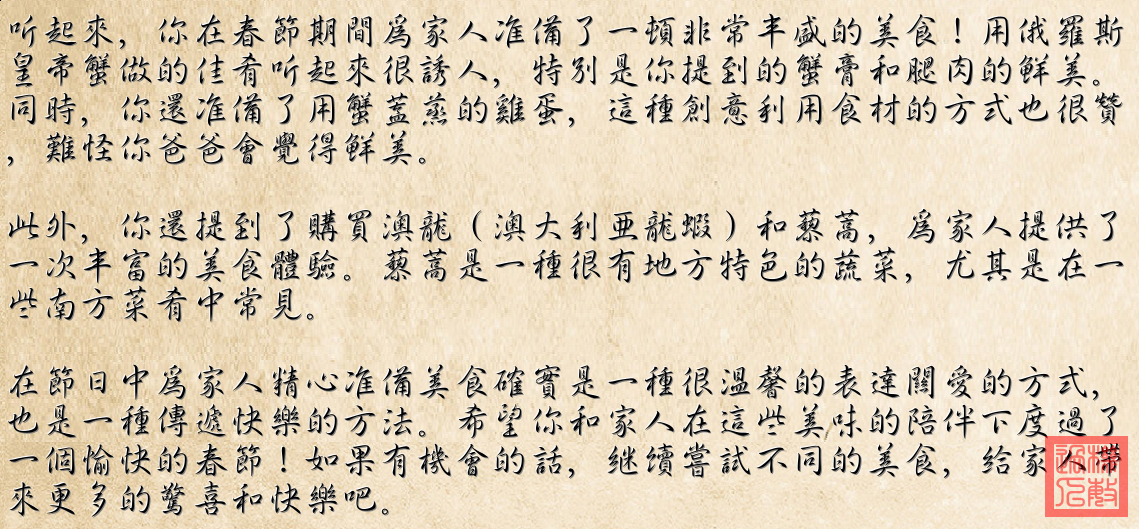 听起來，你在春節期間爲家人准備了一頓非常丰盛的美食！用俄羅斯
皇帝蟹做的佳肴听起來很誘人，特別是你提到的蟹膏和腿肉的鮮美。
同時，你還准備了用蟹蓋蒸的雞蛋，這種創意利用食材的方式也很贊
，難怪你爸爸會覺得鮮美。
此外，你還提到了購買澳龍（澳大利亞龍蝦）和藜蒿，爲家人提供了
一次丰富的美食體驗。藜蒿是一種很有地方特色的蔬菜，尤其是在一
些南方菜肴中常見。
在節日中爲家人精心准備美食確實是一種很溫馨的表達關愛的方式，
也是一種傳遞快樂的方法。希望你和家人在這些美味的陪伴下度過了
一個愉快的春節！如果有機會的話，继續嘗試不同的美食，給家人帶
來更多的驚喜和快樂吧。